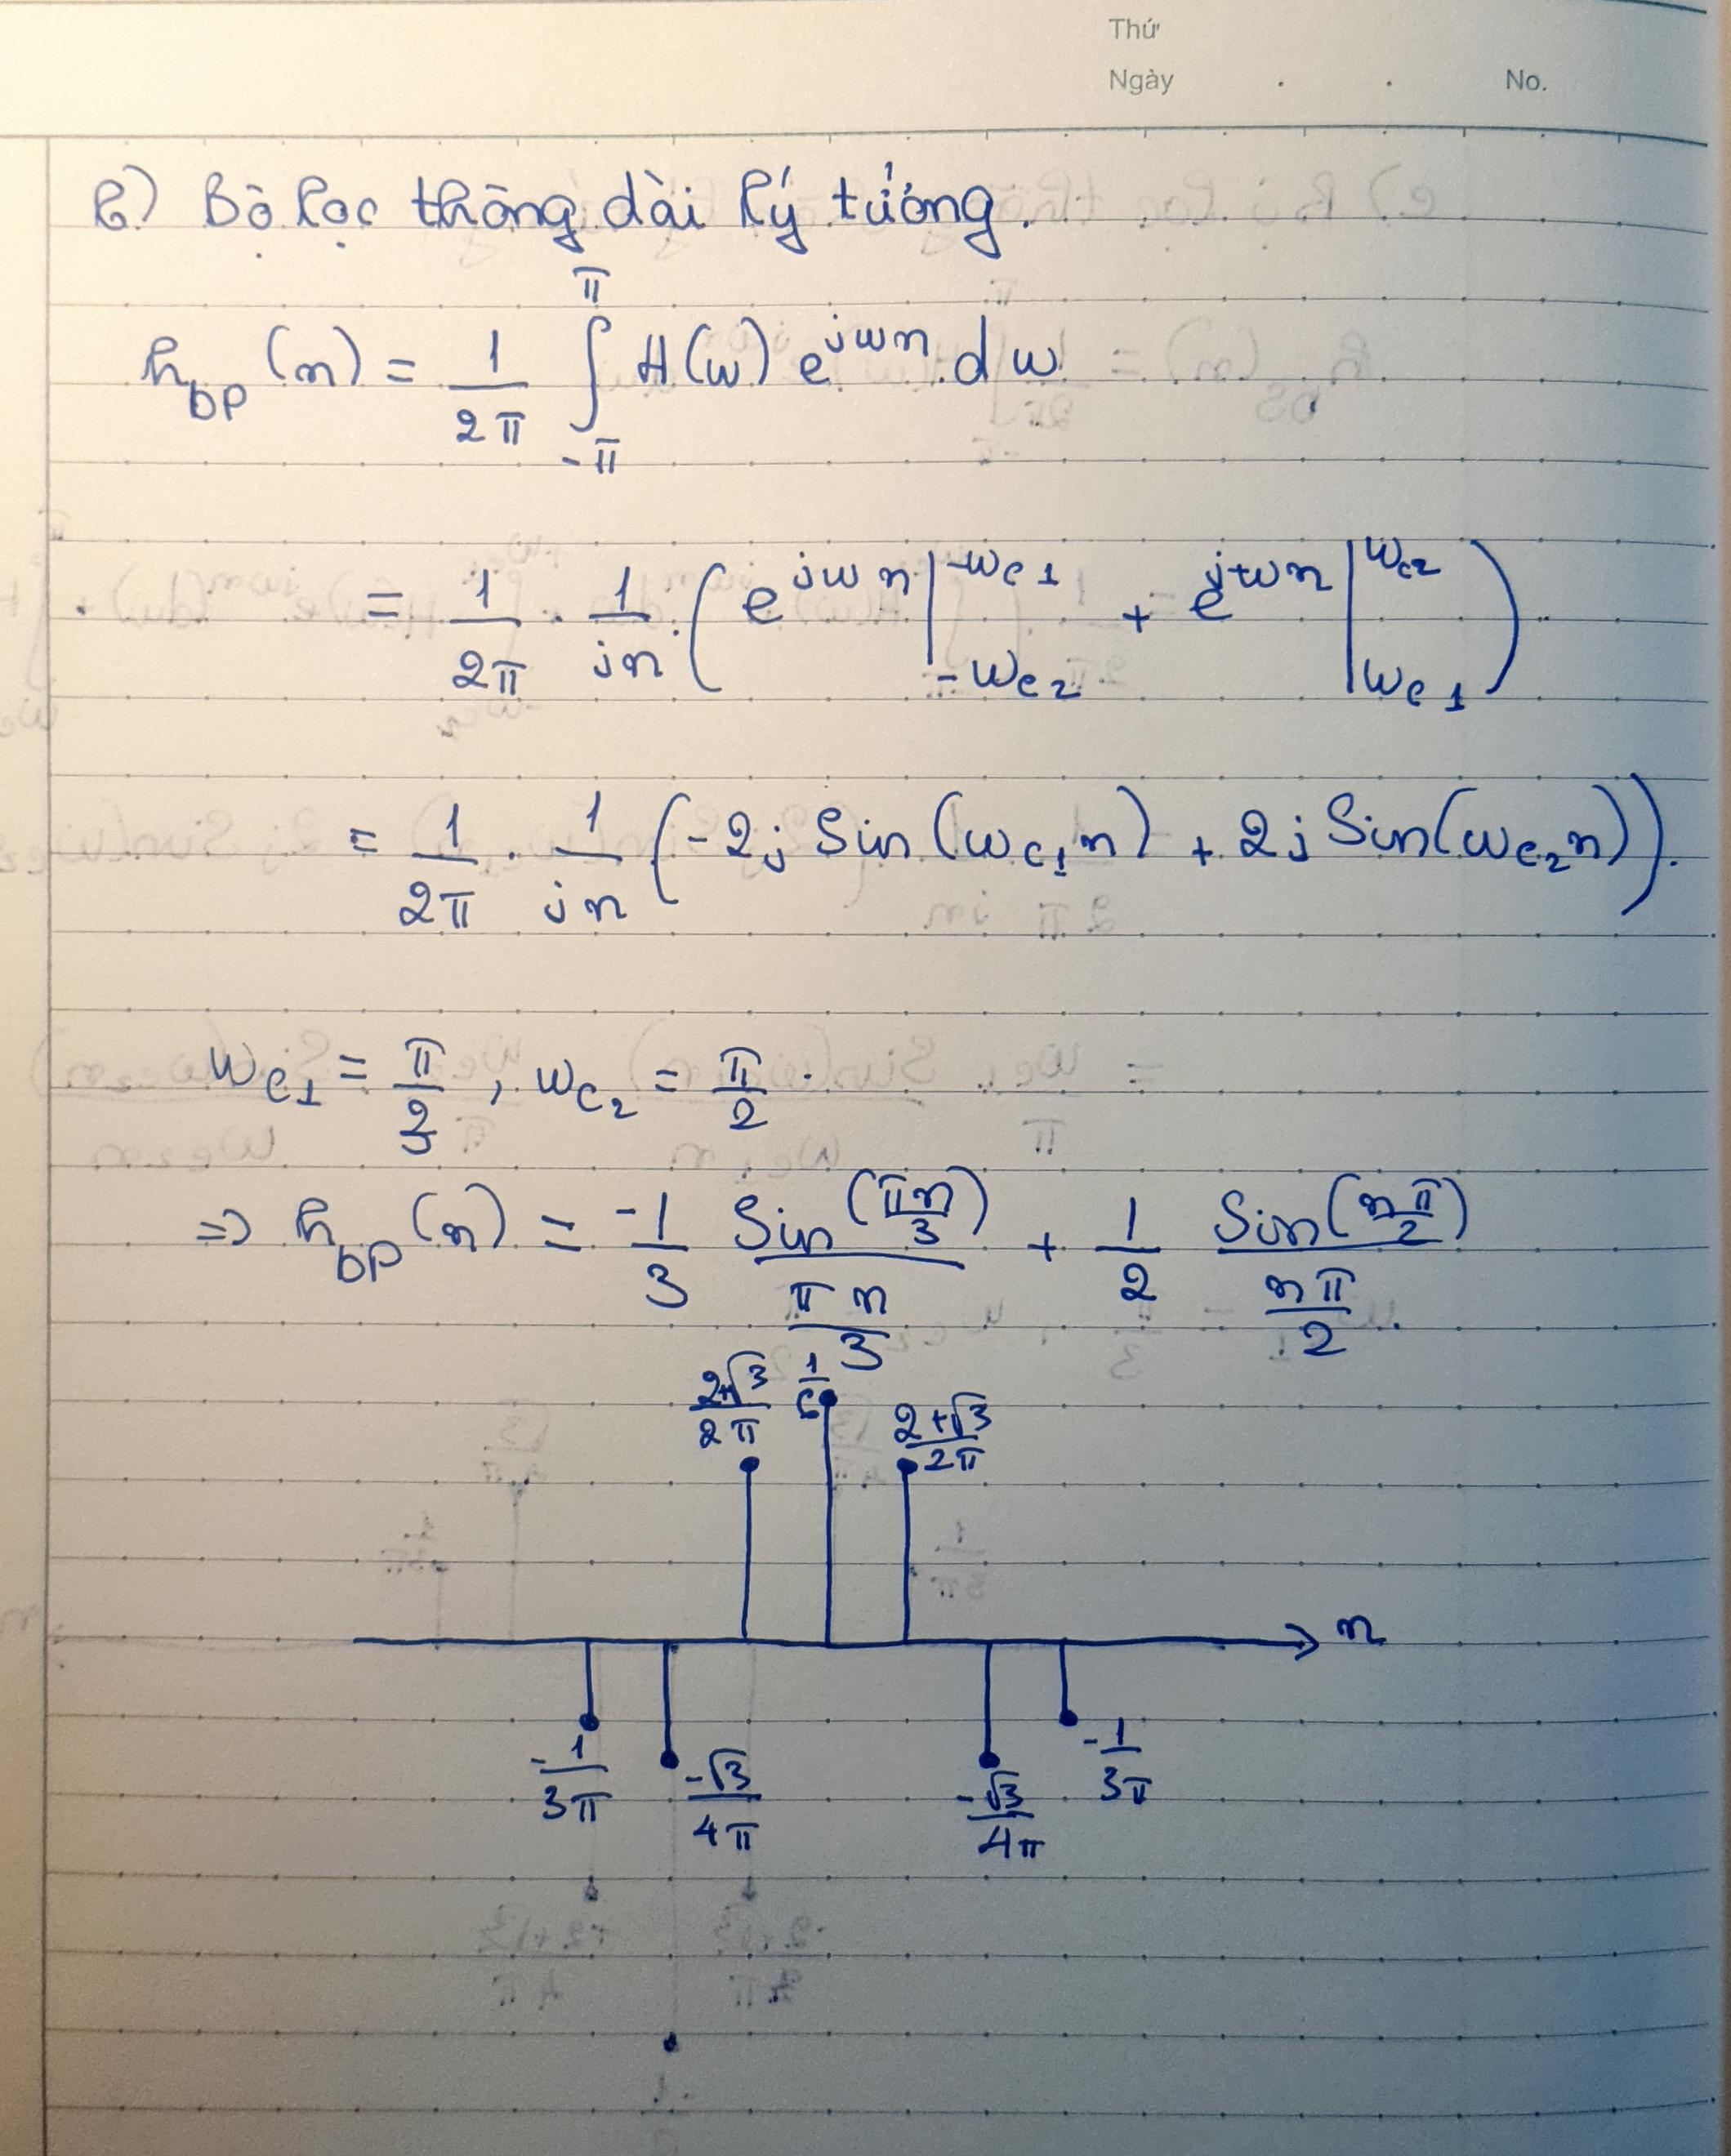 Thứ
Ngày . . No.
b) Bộ lọc thông dải lý tưởng.
h_bp (n) = 1/2π ∫_{-π}^{π} H(ω) e^{jωn} dω
= 1/2π . 1/jn . ( e^{jωn} |_{-ωc2}^{-ωc1} + e^{jωn} |_{ωc1}^{ωc2} )
= 1/2π . 1/jn (-2j Sin(ωc1n) + 2j Sin(ωc2n)).
ωc1 = π/3 , ωc2 = π/2 .
=> h_bp (n) = -1/3 Sin(πn/3)/(πn/3) + 1/2 Sin(nπ/2)/(nπ/2) .
2+√3/2π 1/6 2+√3/2π
n
-1/3π -√3/4π -√3/4π -1/3π